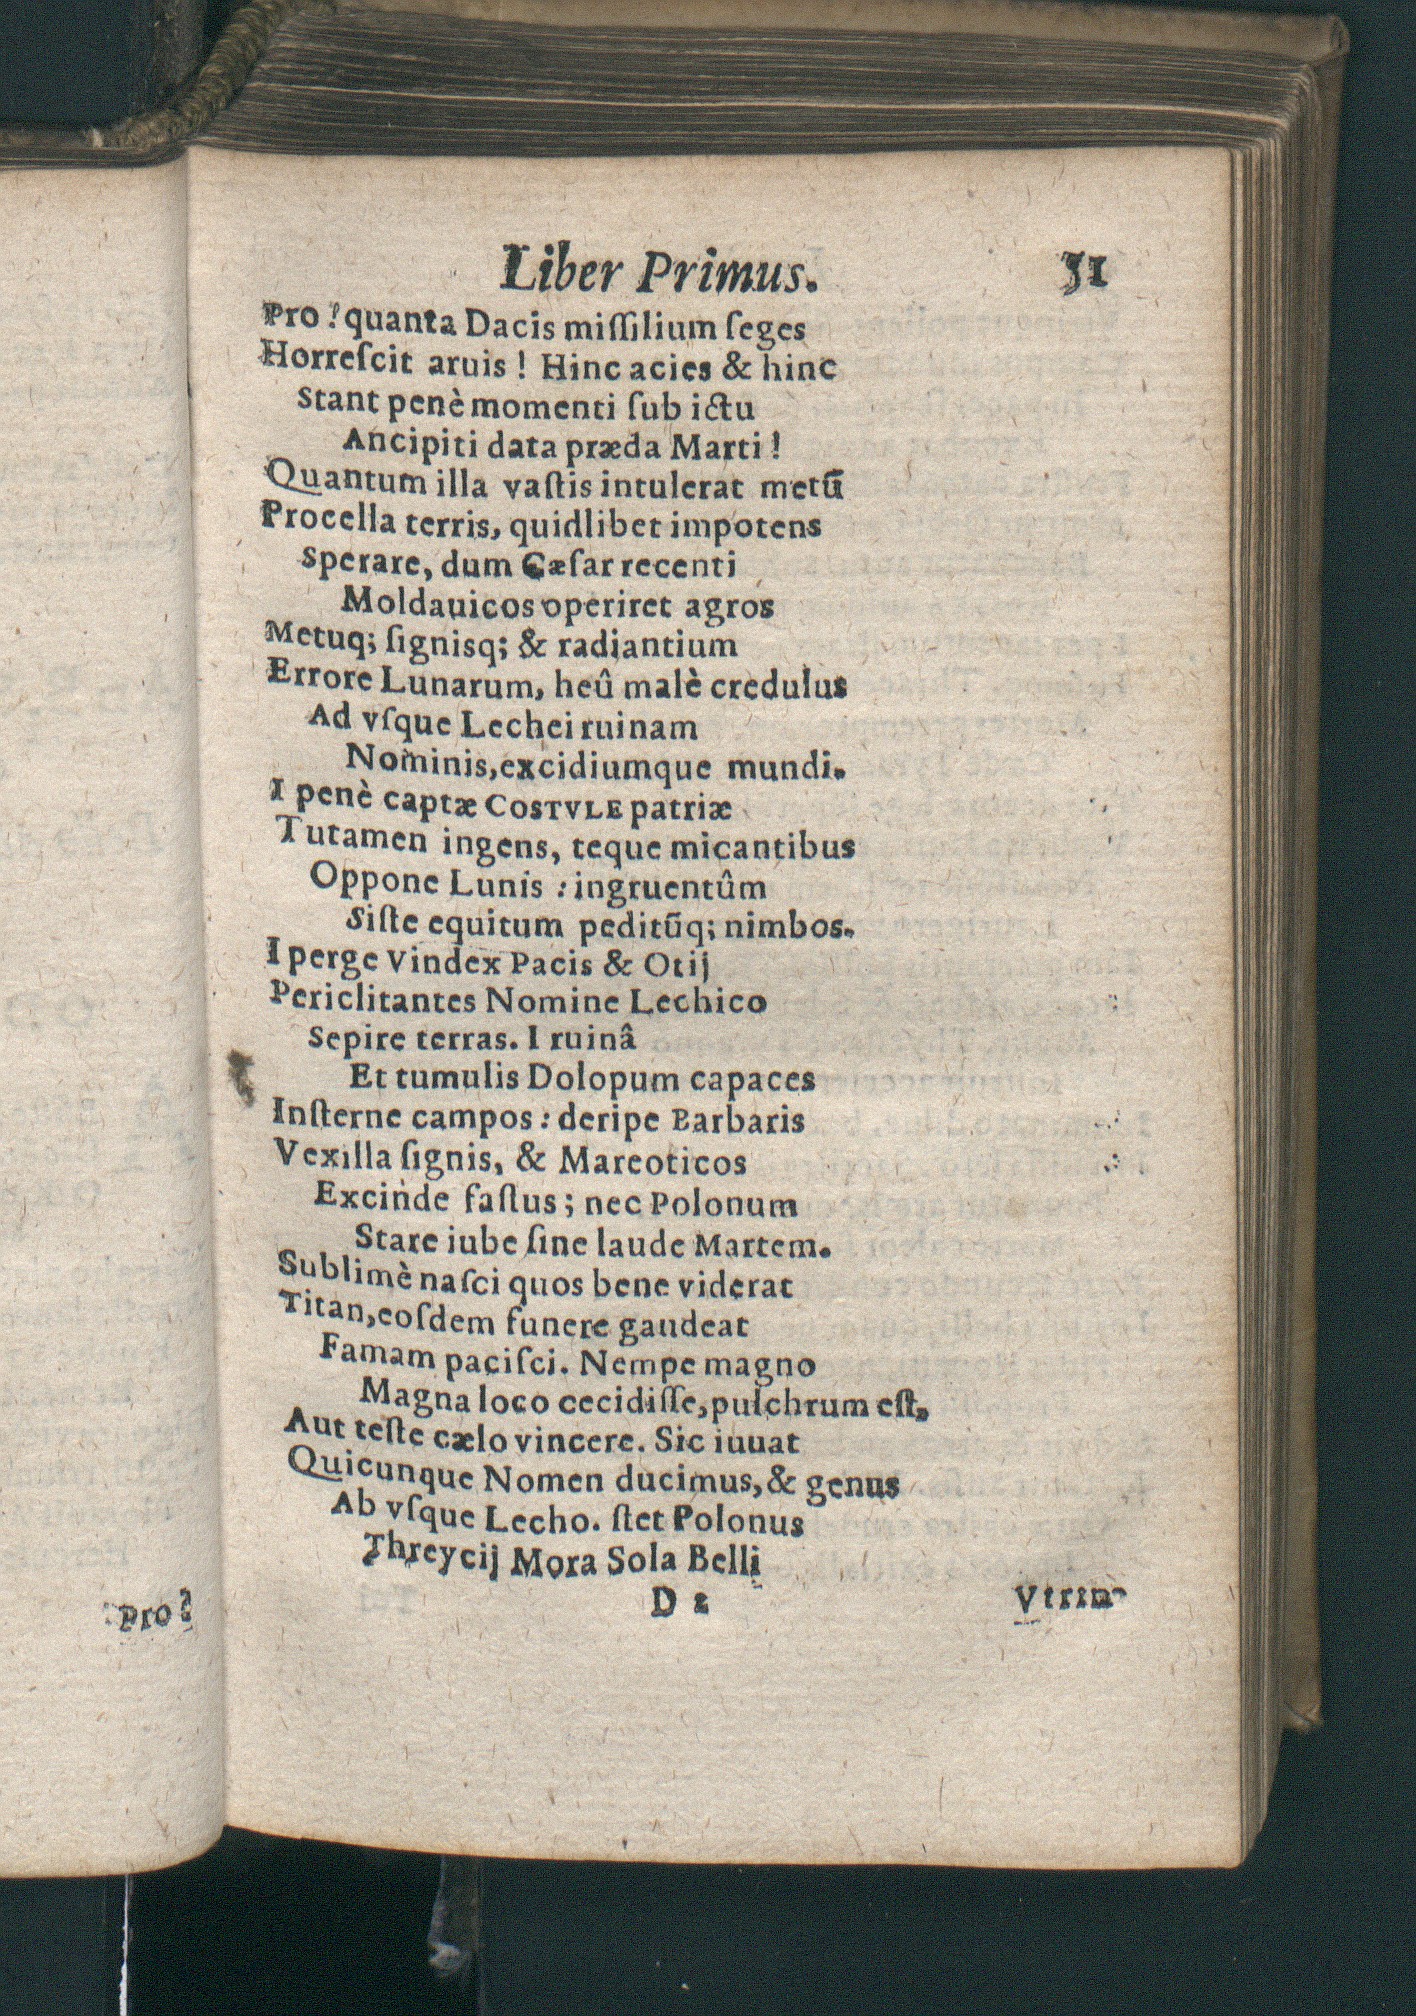 Liber Primus. 51
Pro! quanta Dacis miſſilium ſeges
Horreſcit aruis! Hinc acies & hinc
Stant penè momenti ſub ictu
Ancipiti data præda Marti!
Quantum illa vaſtis intulerat metū
Procella terris, quidlibet impotens
Sperare, dum Cæſar recenti
Moldauicos operiret agros
Metuq; ſignisq; & radiantium
Errore Lunarum, heû malè credulus
Ad vſque Lechei ruinam
Nominis, excidiumque mundi.
I penè captæ COSTVLE patriæ
Tutamen ingens, teque micantibus
Oppone Lunis : ingruentûm
Siſte equitum peditūq; nimbos.
I perge Vindex Pacis & Otij
Periclitantes Nomine Lechico
Sepire terras. I ruinâ
Et tumulis Dolopum capaces
Inſterne campos : deripe Barbaris
Vexilla ſignis, & Mareoticos
Excinde faſtus ; nec Polonum
Stare iube ſine laude Martem.
Sublimè naſci quos bene viderat
Titan, eoſdem funere gaudeat
Famam paciſci. Nempe magno
Magna loco cecidiſſe, pulchrum eſt,
Aut teſte cælo vincere. Sic iuuat
Quicunque Nomen ducimus, & genus
Ab vſque Lecho. ſtet Polonus
Threycij Mora Sola Belli
D 2 Vtrin-
Pro?